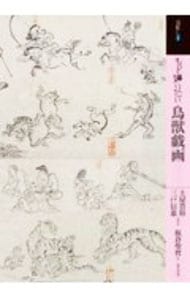 もっと知りたい
鳥獣戯画
土屋貴裕
三戸信惠
板倉聖哲